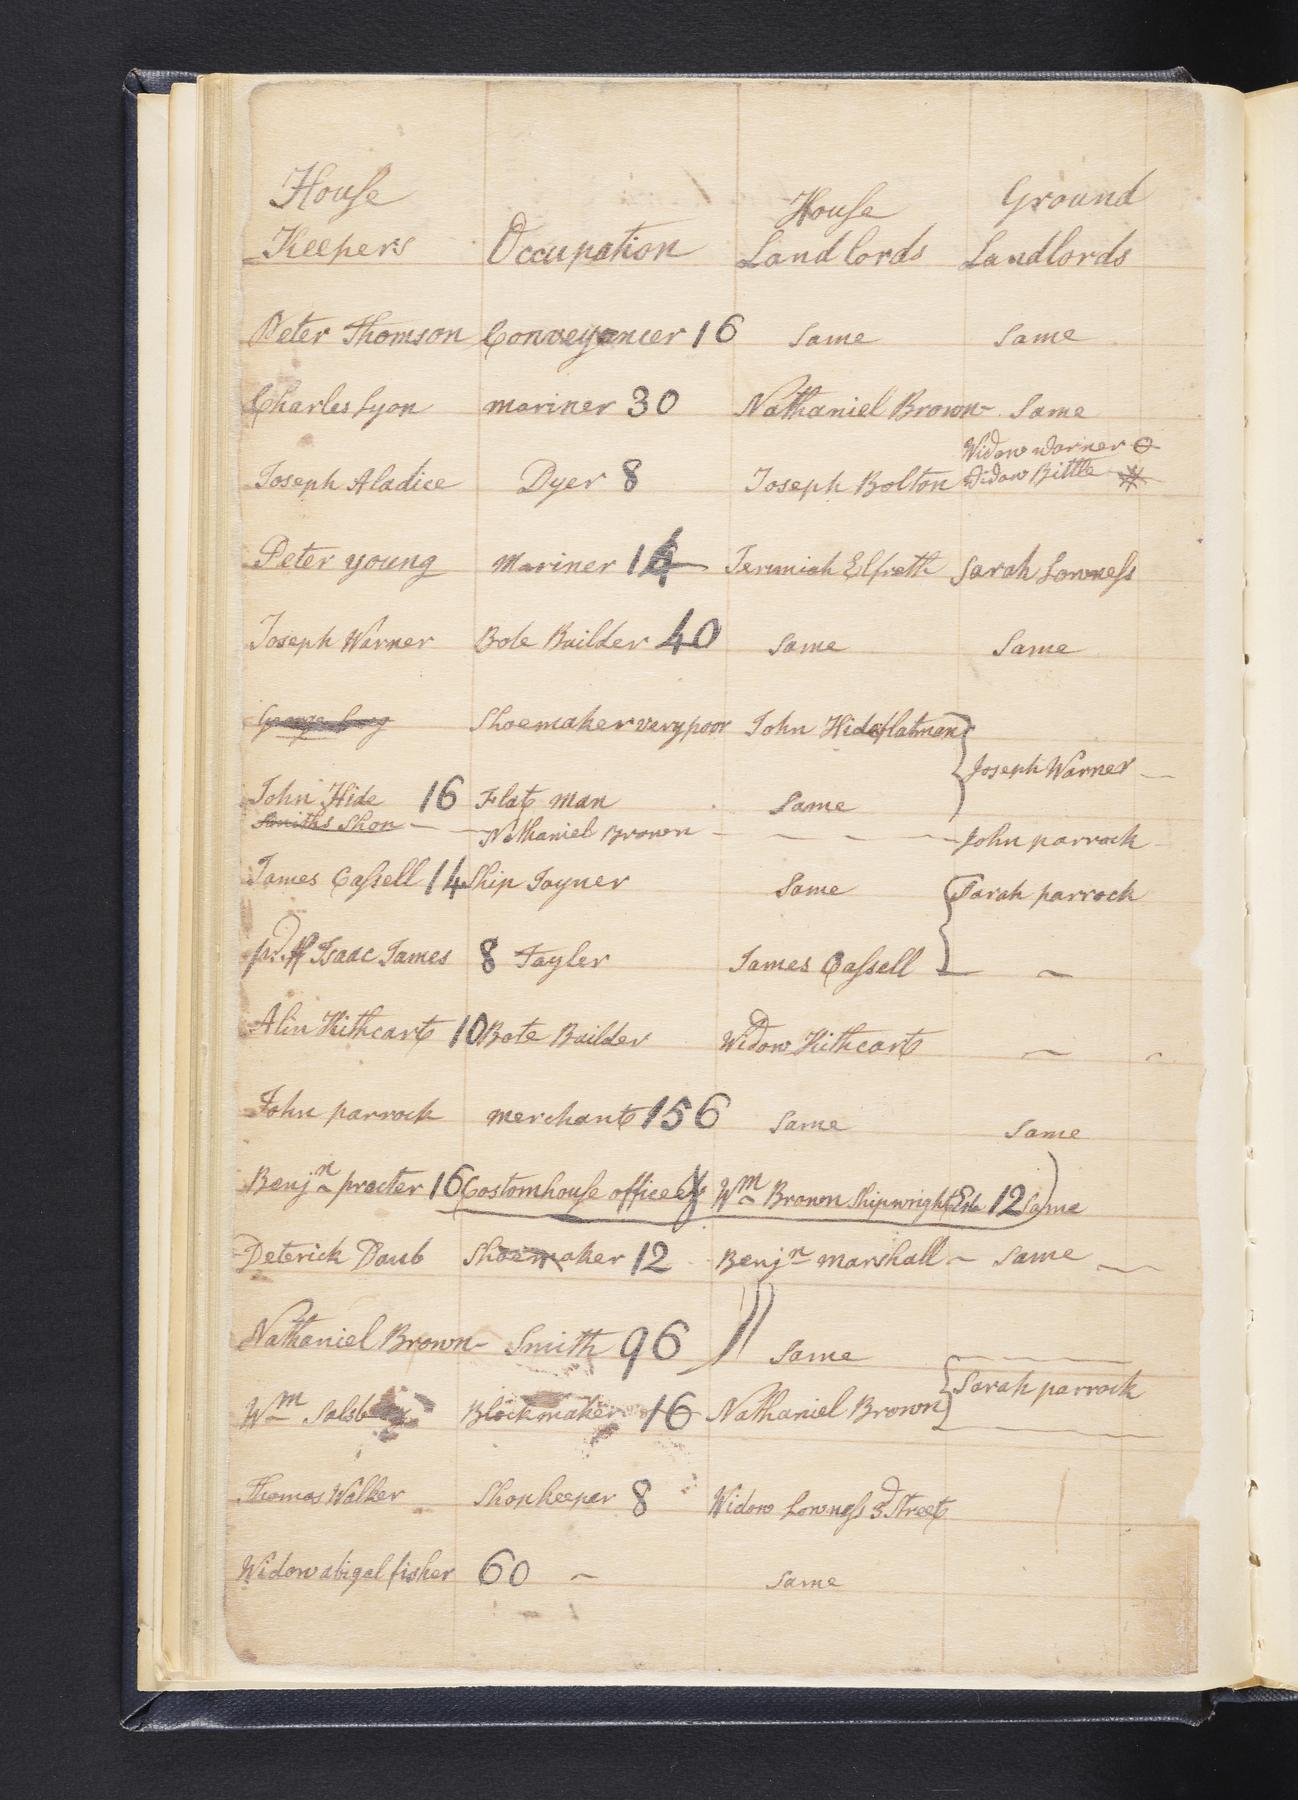 House Ground
House
Keepers Occupation Landlords Landlords
Peter Thomson Conveyancer 16 Same Same
Charles Lyon mariner 30 Nathaniel Brown Same
Widow warner
Joseph Aladice Dyer 8 Joseph Bolton Widow Bittle
Peter young Mariner 14 Jerimiah Elfreth Sarah Lowness
Joseph Warner Bote Builder 40 Same Same
George Shoemaker very poor John Hide flatman
Joseph Warner
John Hide 16 Flat man Same
Smiths Shop Nathaniel Brown John parrock
James Cassell 14 Ship Joyner Same Sarah parrock
Isaac James 8 Tayler James Cassell
Alin Hithcart 10 Bote Builder Widow Hithcart
John parrock merchant 156 Same Same
Benjn procter 16 Costomhouse officer Wm Brown Shipwright 12 Same
Deterick Daub Shoemaker 12 Benjn marshall Same
Nathaniel Brown Smith 96 Same
Sarah parrock
Wm Blockmaker 16 Nathaniel Brown
Thomas Walker Shopkeeper 8 Widow Lowness 3d Street
Widow abigal fisher 60 Same